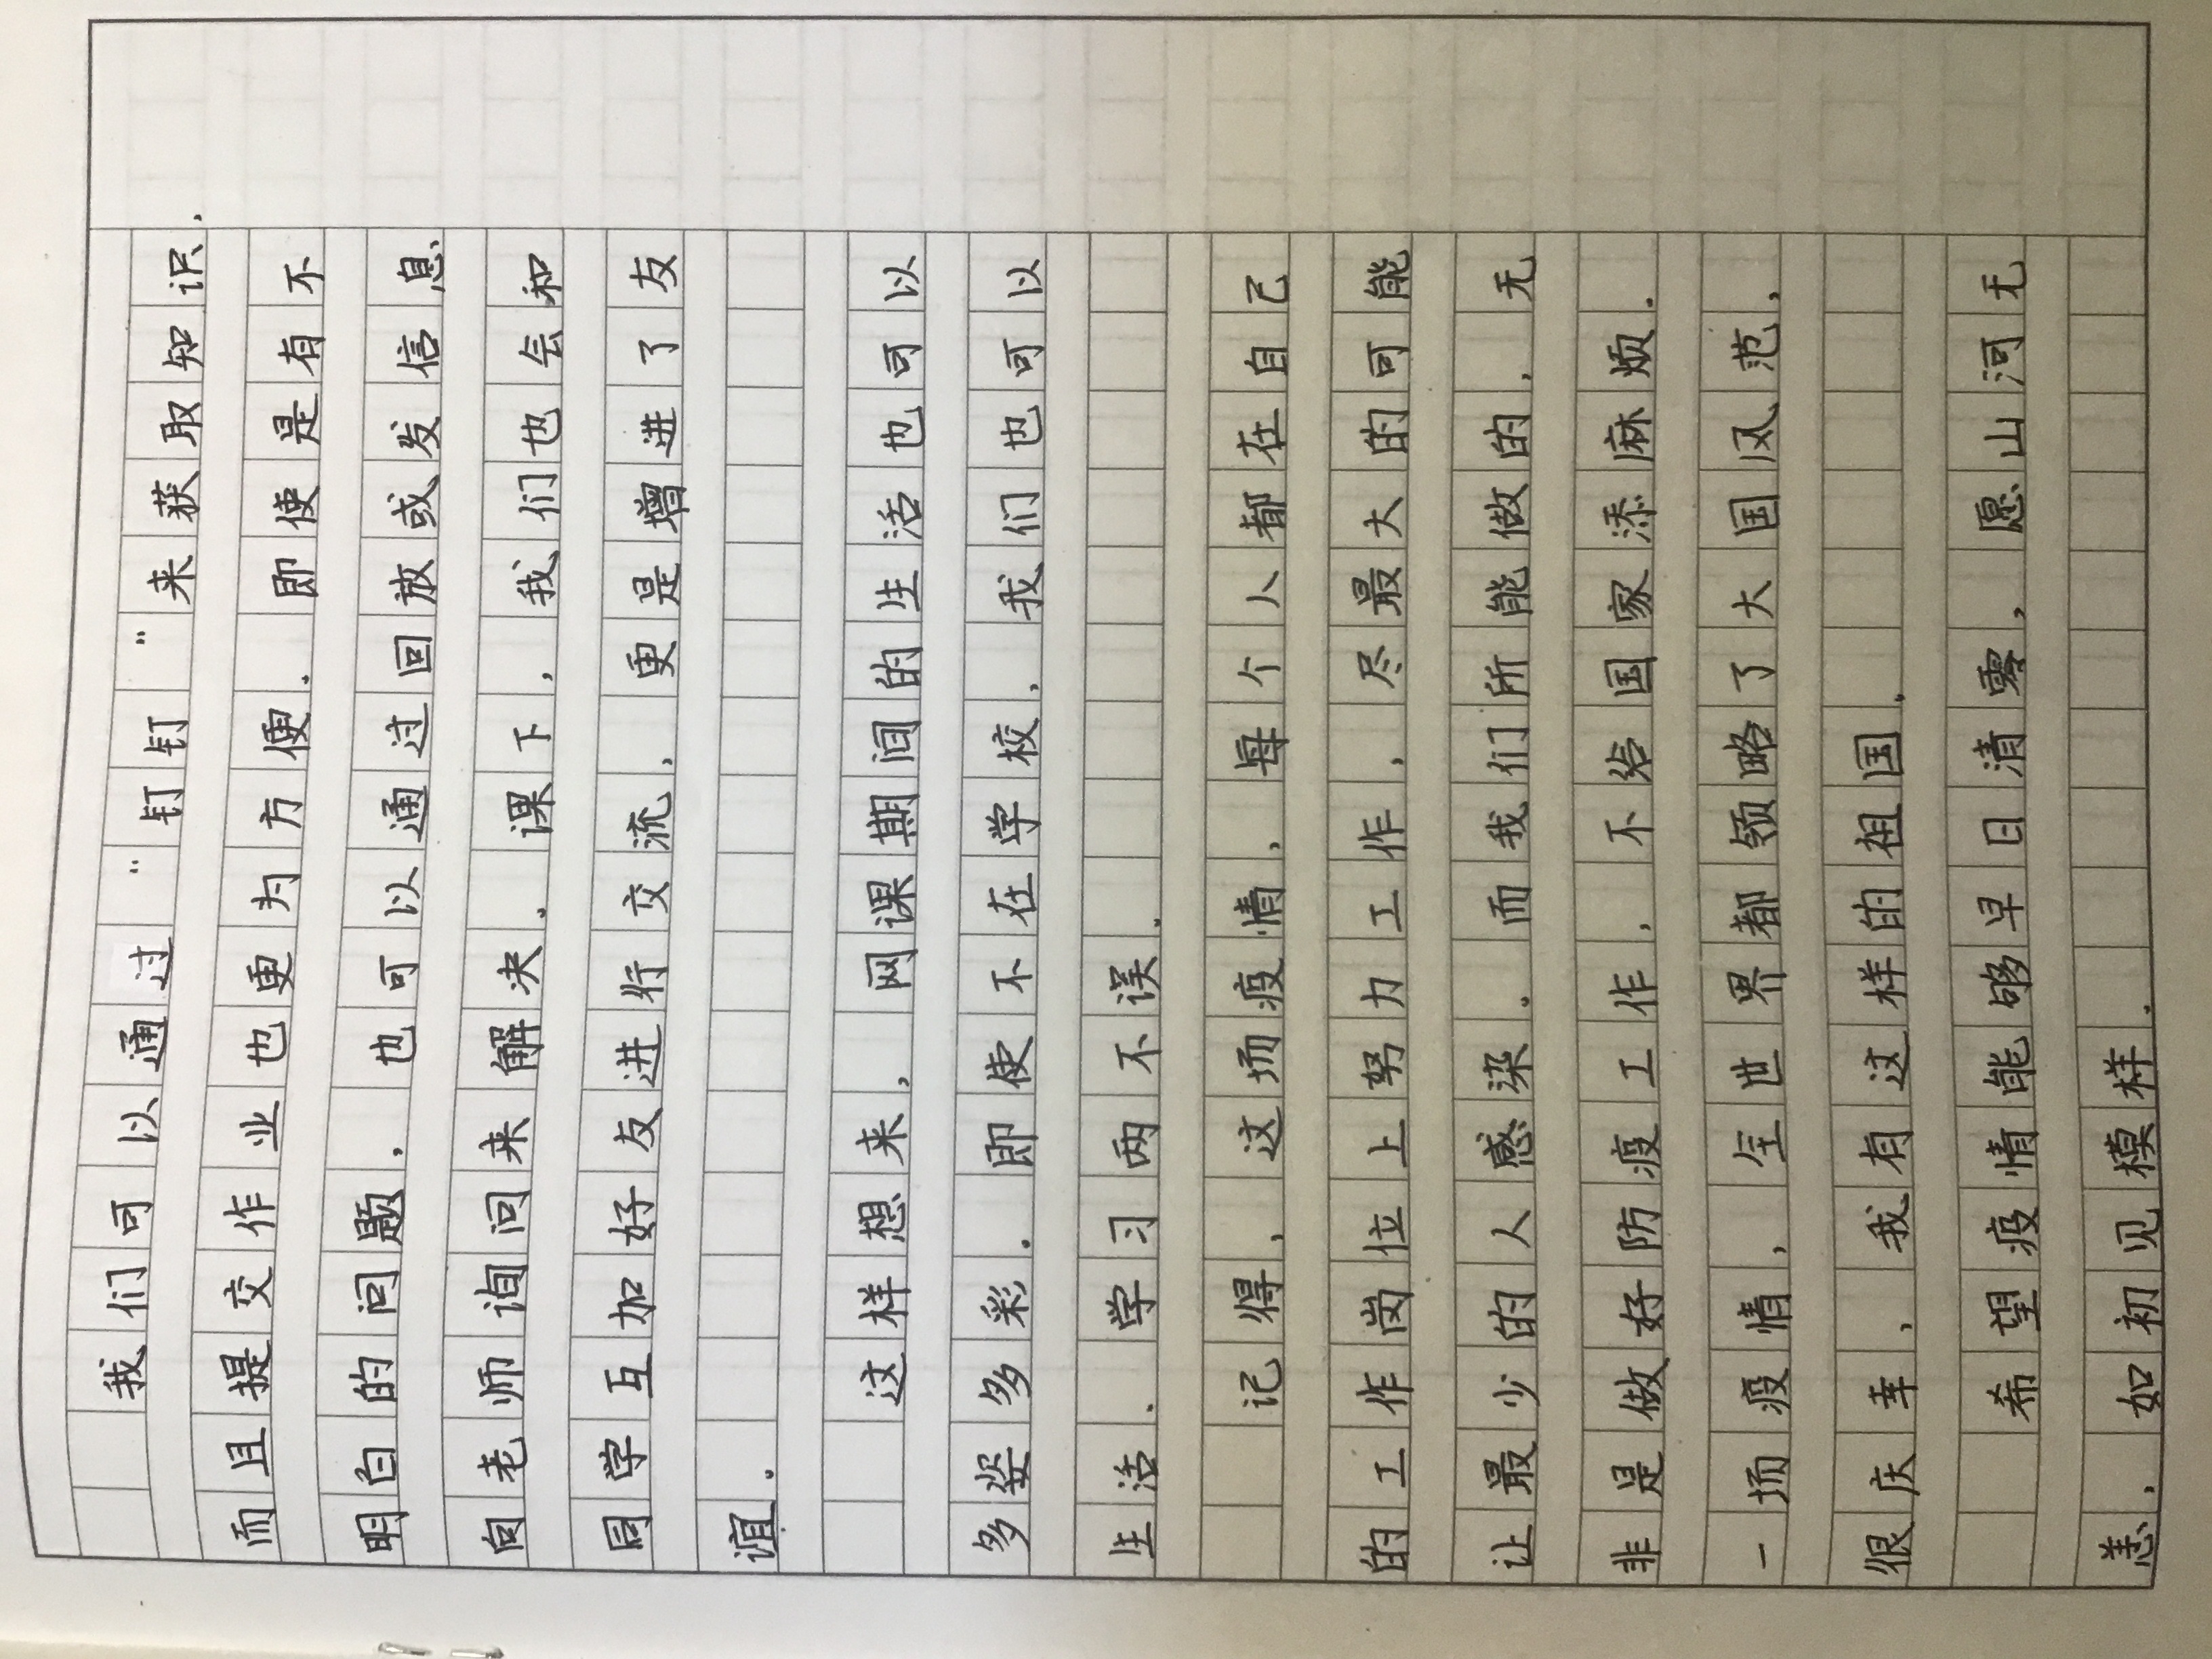 我们可以通过“钉钉”来获取知识，
而且提交作业也更为方便。即使是有不
明白的问题，也可以通过回放或发信息
向老师询问来解决。课下，我们也会和
同学互加好友进行交流，更是增进了友
谊。
这样想来，网课期间的生活也可以
多姿多彩。即使不在学校，我们也可以
生活、学习两不误。
记得，这场疫情，每个人都在自己
的工作岗位上努力工作，尽最大的可能
让最少的人感染。而我们所能做的，无
非是做好防疫工作，不给国家添麻烦。
一场疫情，全世界都领略了大国风范，
很庆幸，我有这样的祖国。
希望疫情能够早日清零，愿山河无
恙，如初见模样。